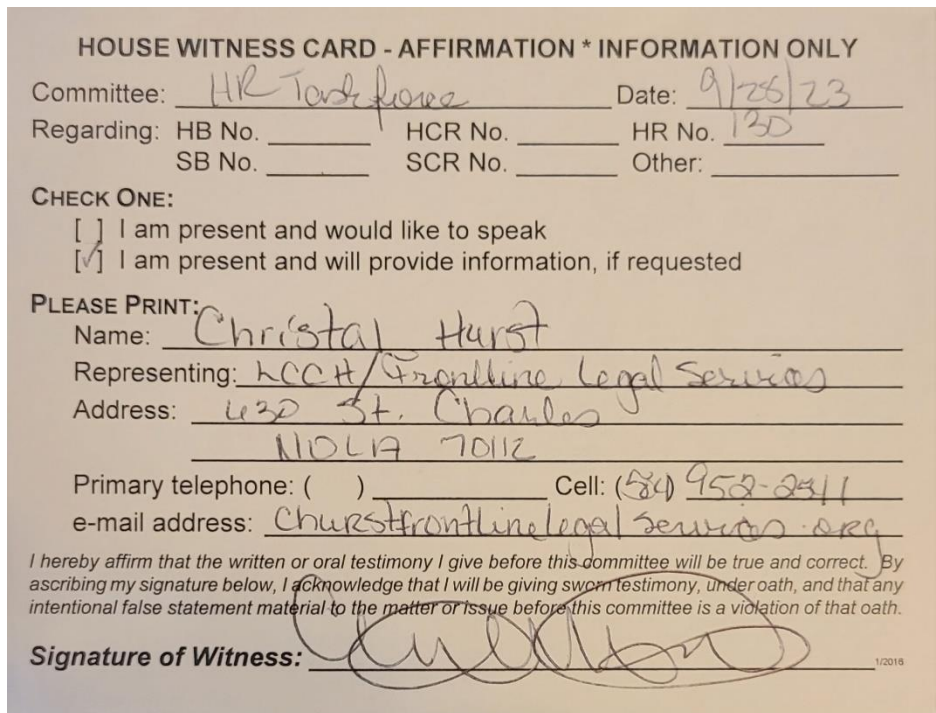 HOUSE WITNESS CARD - AFFIRMATION * INFORMATION ONLY
Committee: HR Taskforce Date: 9/28/23
Regarding: HB No. ______ HCR No. ______ HR No. 130
SB No. ______ SCR No. ______ Other: ______
CHECK ONE:
[ ] I am present and would like to speak
[✓] I am present and will provide information, if requested
PLEASE PRINT:
Name: Christal Hurst
Representing: LCCH/Frontline Legal Services
Address: 430 St. Charles
NOLA 70112
Primary telephone: ( ) ______ Cell: 952-2511
e-mail address: Churstfrontlinelegalservices.org
I hereby affirm that the written or oral testimony I give before this committee will be true and correct. By
ascribing my signature below, I acknowledge that I will be giving sworn testimony, under oath, and that any
intentional false statement material to the matter or issue before this committee is a violation of that oath.
Signature of Witness:
1/2016